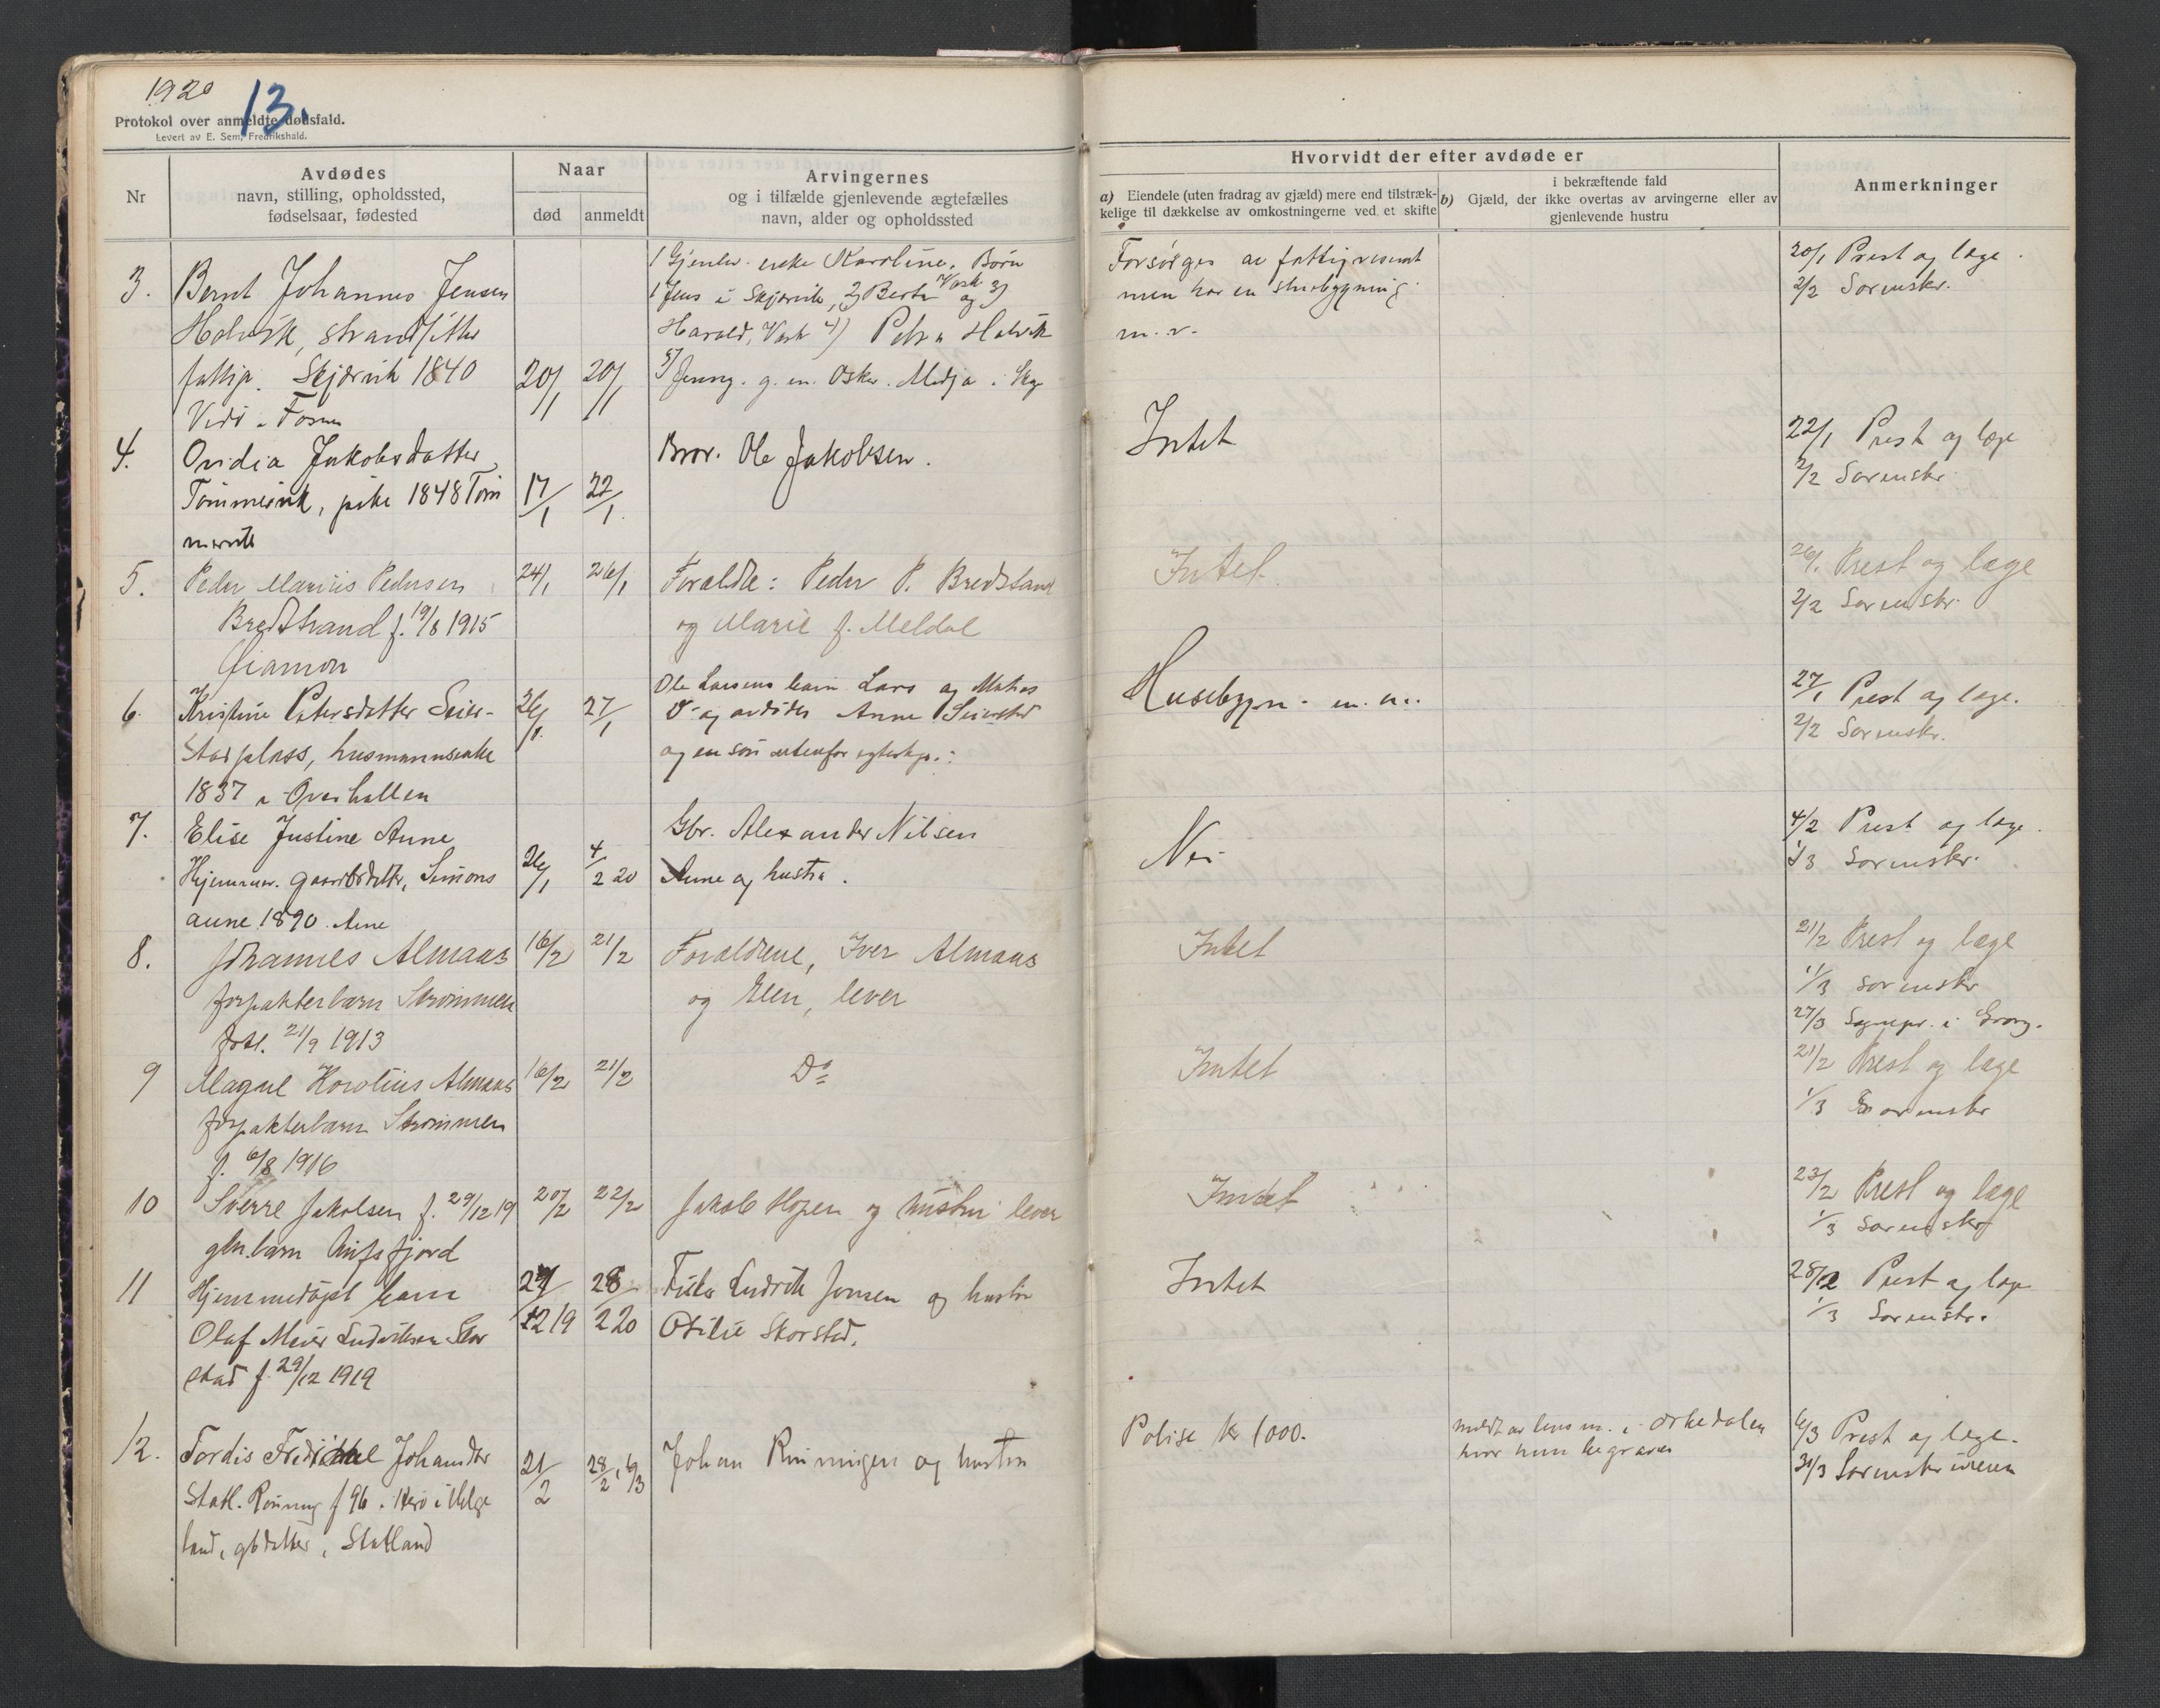 1920
13.
Protokol over anmeldte dødsfald.
Levert av E. Sem, Fredrikshald.
Nr
Avdødes
navn, stilling, opholdssted,
fødselsaar, fødested
Naar
død
anmeldt
Arvingernes
og i tilfælde gjenlevende ægtefælles
navn, alder og opholdssted
Hvorvidt der efter avdøde er
a) Eiendele (uten fradrag av gjæld) mere end tilstræk-
kelige til dækkelse av omkostningerne ved et skifte
b) i bekræftende fald
Gjæld, der ikke overtas av arvingerne eller av
gjenlevende hustru
Anmerkninger
3.
Bernt Johannes Jensen
Holvik, strandsitter
fattig. Skjærvik 1840
20/1
20/1
Gjenlev. enke Karoline. Børn
1) Jens i Skjærvik, 2) Berta Vask og 3)
Harald, Vask 4) Petra Holvik
5) Jenny. g. m. Oskar
Forsørges av fattigvesenet
men har en stuebygning
m. v.
20/1 Prest og læge.
2/2 Sorenskr.
4.
Ovidia Jakobsdatter
Tømmervik, pike 1848 Tøm
mervik
17/1
22/1
Bror. Ole Jakobsen.
Intet
22/1 Prest og læge
2/2 Sorenskr.
5.
Peder Marius Pedersen
Bredstrand f. 19/8 1915
24/1
26/1
Forældre: Peder P. Bredstand
og Marie f. Meldal
Intet.
26/1 Prest og læge
2/2 Sorenskr.
6.
Kristine Petersdatter Seier-
stadplass, husmannsenke
1837 i Overhallen
26/1
27/1
Ole Larsens barn Lars og
og avdødes Anne Seierstad
og en søn utenfor egteskp.
Husebygn. m. m.
27/1 Prest og læge.
2/2 Sorenskr.
7.
Elise Justine Aune
Hjemmev. gaardbdatter, Simons
aune 1890. Aune
26/1
4/2 20
Gbr. Alexander Nilsen
Aune og hustru.
Nei
4/2 Prest og læge.
1/3 Sorenskr.
8.
Johannes Almaas
forpakterbarn Strømmen
født. 21/9 1913
16/2
21/2
Forældrene, Iver Almaas
og Elen, lever
Intet
21/2 Prest og læge
1/3 sorenskr
27/3 Sognepr. i Grong.
9
Magne Karolius Almaas
forpakterbarn Strømmen
f. 6/8 1916
16/2
21/2
Do
Intet
21/2 Prest og læge
1/3 Sorenskr
10
Sverre Jakobsen f. 29/12 19
gbr. barn fjord
20/2
22/2
Jakob Hopen og hustru lever
Intet
23/2 Prest og læge
1/3 Sorenskr
11
Hjemmedøpt barn
Olaf Meier Ludviksen Stor
stad f. 29/12 1919
29/12 19
28/2 20
Fisker Ludvik Jonsen og hustru
Otilie Storstad.
Intet
28/2 Prest og læge
1/3 Sorenskr.
12.
Tordis Johansdtr
Statl. Rønning f 96. Herø i Helge
land, gbdatter, Statland
21/2
28/2, 6/3
Johan Rønningen og hustru
Polise kr 1000.
meldt av lensm. i Orkedalen
hvor hun begraves
6/3 Prest og læge.
31/3 Sorenskriveren